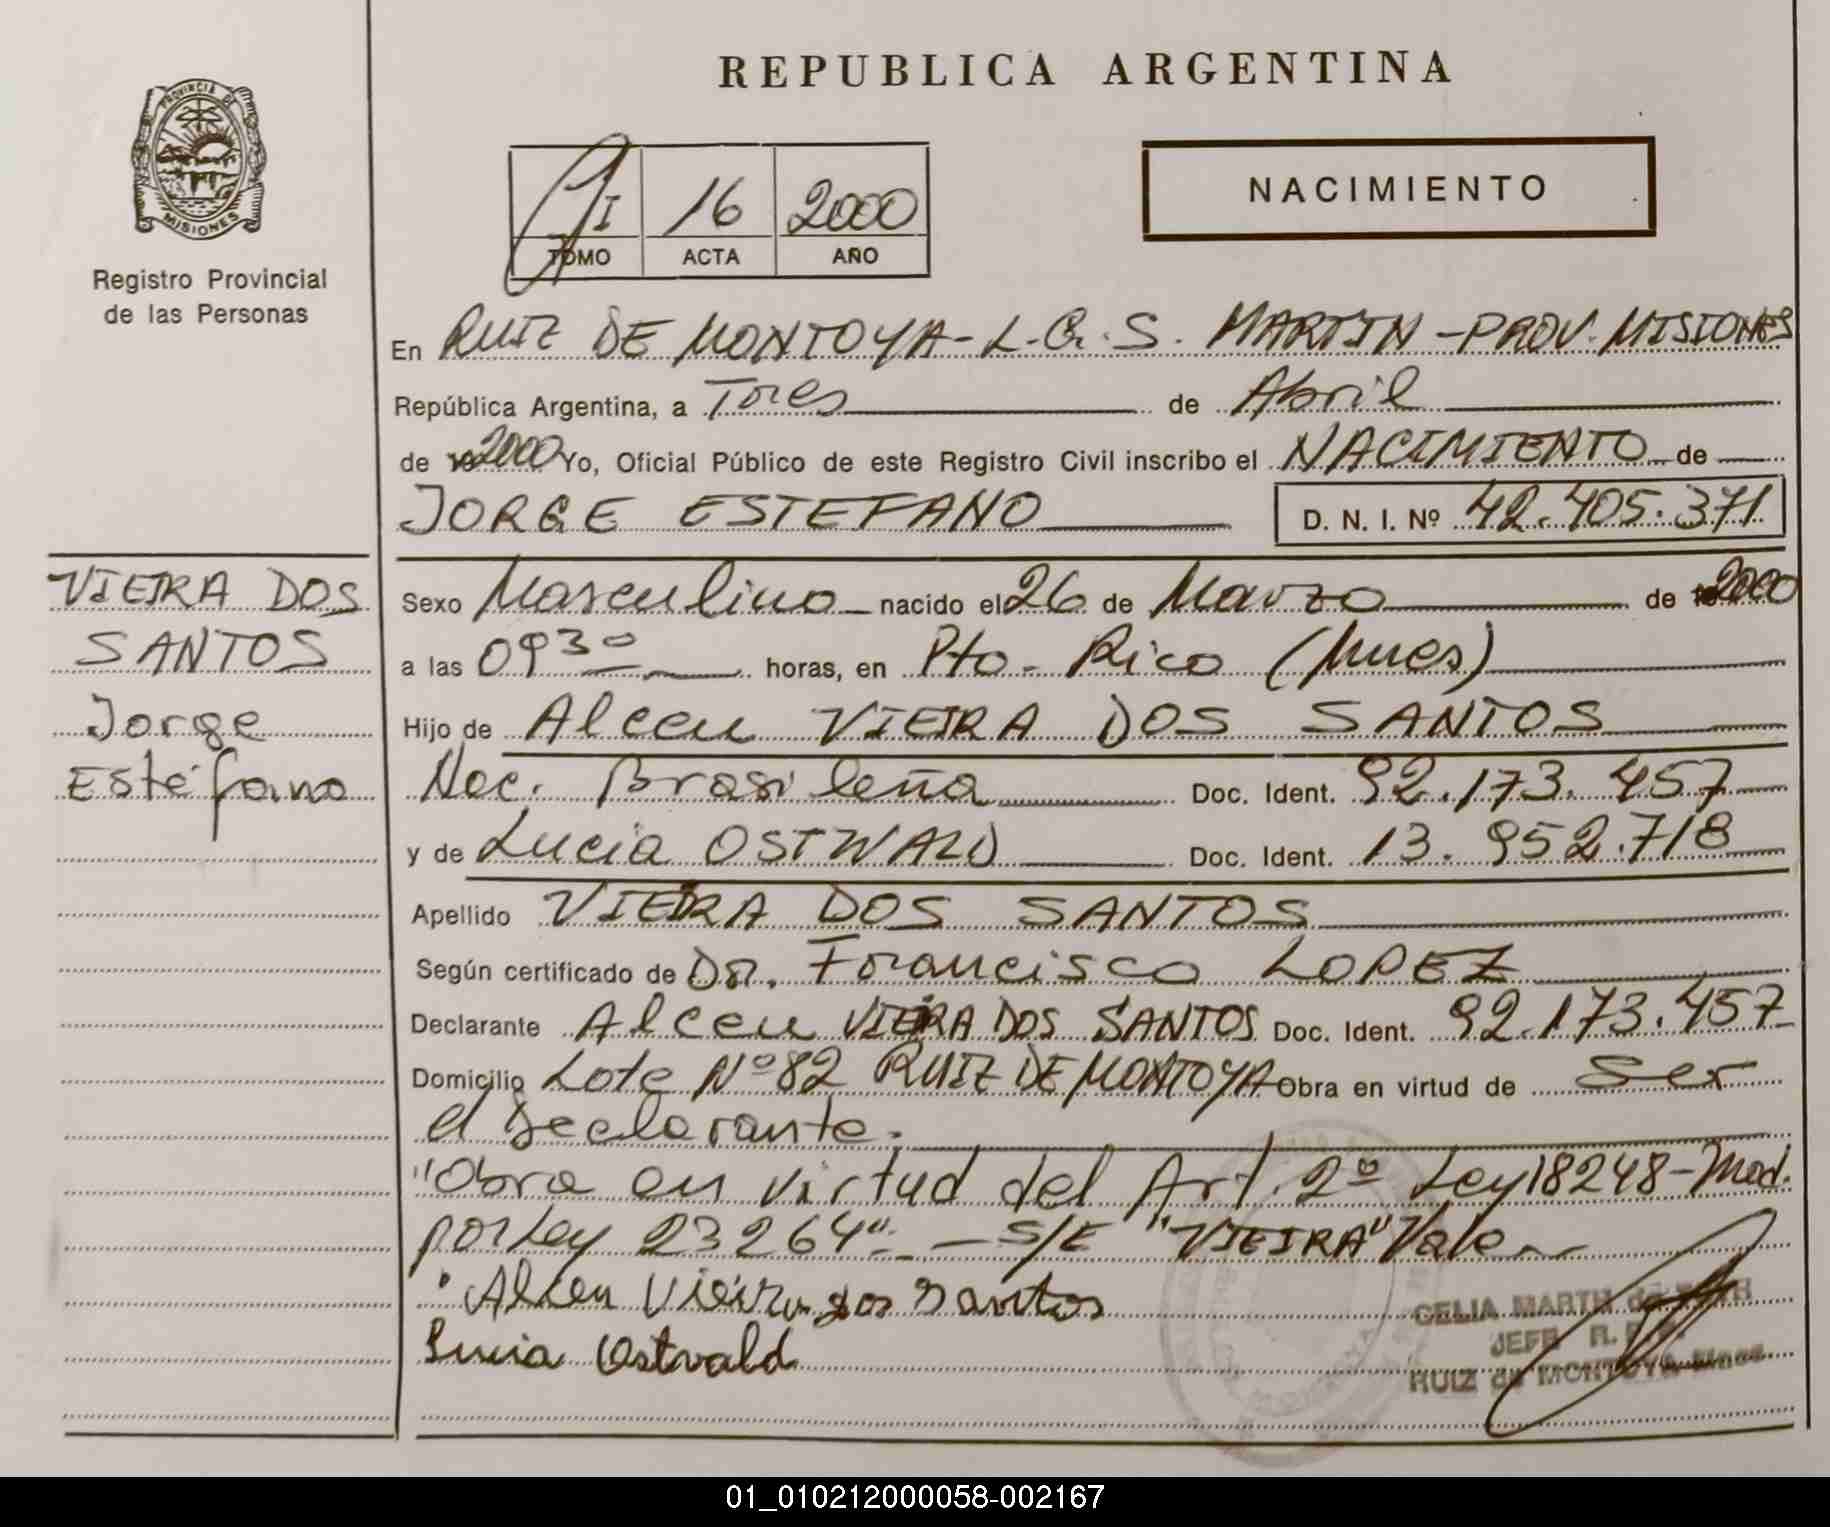 REPUBLICA ARGENTINA
PROVINCIA DE
MISIONES
Registro Provincial
de las Personas
I 16 2000
TOMO ACTA AÑO
NACIMIENTO
En RUIZ DE MONTOYA - L.G.S. MARTIN - PROV. MISIONES
República Argentina, a Tres de Abril
de 2000 Yo, Oficial Público de este Registro Civil inscribo el NACIMIENTO de
JORGE ESTEFANO D. N. I. Nº 42.405.371
VIEIRA DOS
SANTOS
Jorge
Estéfano
Sexo Masculino nacido el 26 de Marzo de 2000
a las 09 30 horas, en Pto. Rico (Mnes)
Hijo de Alceu VIEIRA DOS SANTOS
Nac. Brasileña Doc. Ident. 92.173.457
y de Lucia OSTWALD Doc. Ident. 13.952.718
Apellido VIEIRA DOS SANTOS
Según certificado de Dr. Francisco LOPEZ
Declarante Alceu VIEIRA DOS SANTOS Doc. Ident. 92.173.457
Domicilio Lote Nº 82 RUIZ DE MONTOYA Obra en virtud de Ser
el Declarante.
"Obra en virtud del Art. 2º Ley 18248 - Mod.
por Ley 23264". — S/E "VIEIRA" Vale
Alceu Vieira dos Santos
Lucia Ostvald
CELIA MARTH de
JEFE R.
RUIZ de MONTOYA - Mnes.
01_010212000058-002167